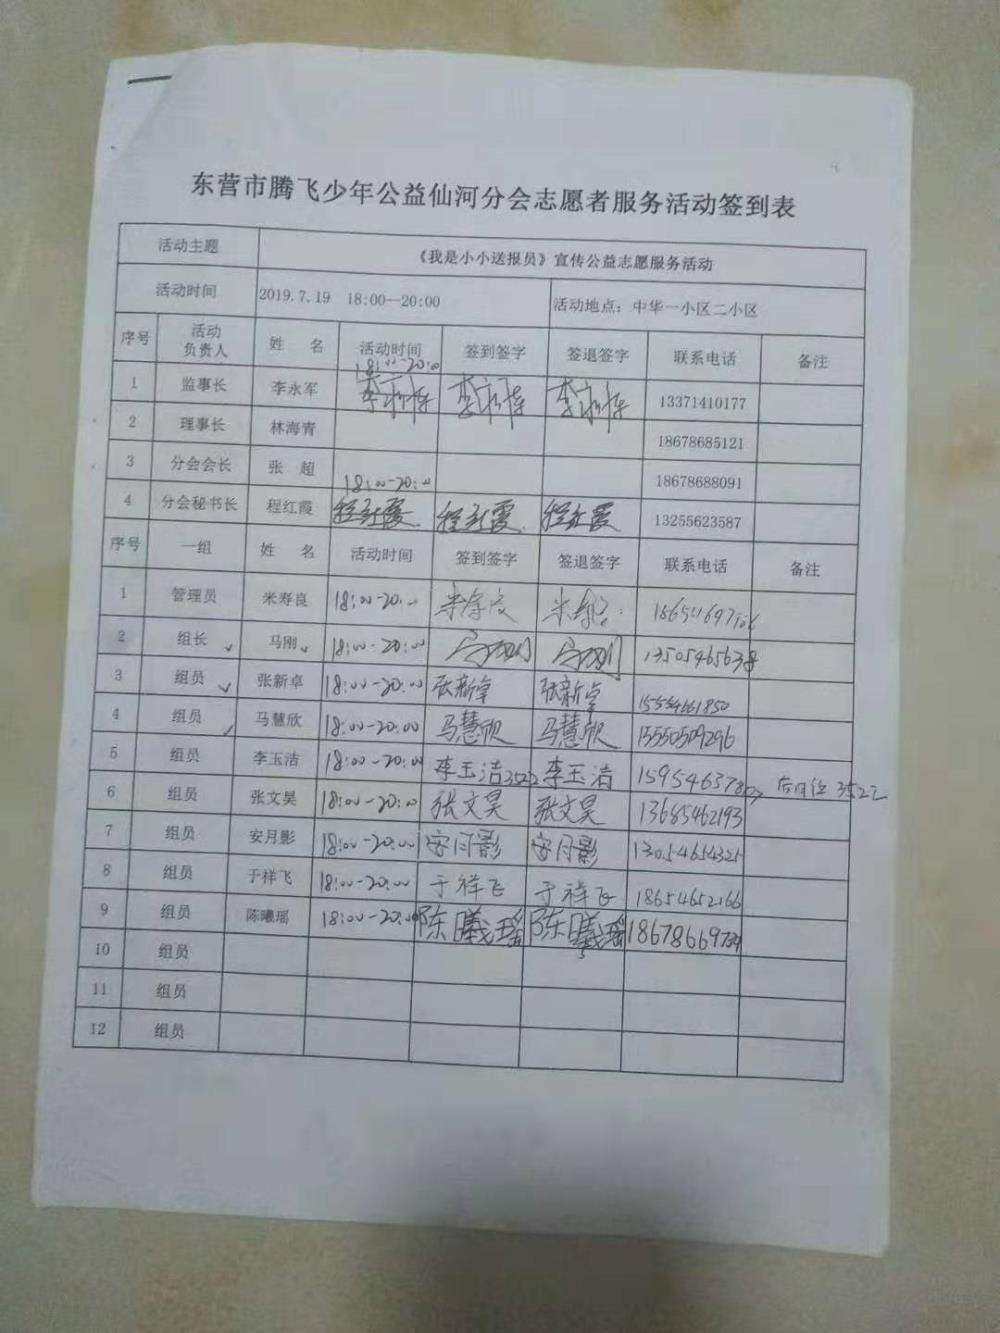 东营市腾飞少年公益仙河分会志愿者服务活动签到表
活动主题 《我是小小送报员》宣传公益志愿服务活动
活动时间 2019.7.19 18:00—20:00 活动地点：中华一小区二小区
序号 活动负责人 姓 名 活动时间 签到签字 签退签字 联系电话 备注
18:00-20:00
1 监事长 李永军 13371410177
2 理事长 林海青 18678685121
3 分会会长 张 超 18678688091
18:00-20:00
4 分会秘书长 程红霞 程红霞 程红霞 程红霞 13255623587
序号 一组 姓 名 活动时间 签到签字 签退签字 联系电话 备注
1 管理员 米寿良 18:00-20:00
2 组长 马刚 18:00-20:00 马刚 马刚 13505465638
3 组员 张新卓 18:00-20:00 张新卓 张新卓 15554661850
4 组员 马慧欣 18:00-20:00 马慧欣 马慧欣 15550509296
5 组员 李玉洁 18:00-20:00 李玉洁3522 李玉洁
6 组员 张文昊 18:00-20:00 张文昊 张文昊 13685462193
7 组员 安月影 18:00-20:00 安月影 安月影 13054654325
8 组员 于祥飞 18:00-20:00 于祥飞 于祥飞 18654652166
9 组员 陈曦瑶 18:00-20:00 陈曦瑶 陈曦瑶
10 组员
11 组员
12 组员